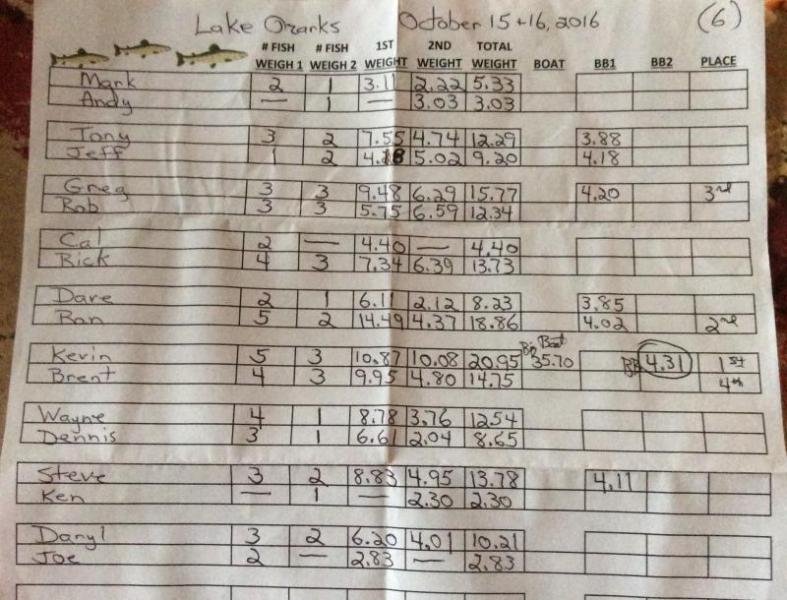 Lake Ozarks October 15+16, 2016 (6)
# FISH # FISH 1ST 2ND TOTAL
WEIGH 1 WEIGH 2 WEIGHT WEIGHT WEIGHT BOAT BB1 BB2 PLACE
Mark 2 1 3.11 2.22 5.33
Andy — 1 — 3.03 3.03
Tony 3 2 7.55 4.74 12.29 3.88
Jeff 1 2 4.18 5.02 9.20 4.18
Greg 3 3 9.48 6.29 15.77 4.20 3rd
Rob 3 3 5.75 6.59 12.34
Cal 2 — 4.40 — 4.40
Rick 4 3 7.34 6.39 13.73
Dave 2 1 6.11 2.12 8.23 3.85
Ron 5 2 14.49 4.37 18.86 4.02 2nd
Big Boat
Kevin 5 3 10.87 10.08 20.95 35.70 BB 4.31 1st
Brent 4 3 9.95 4.80 14.75 4th
Wayne 4 1 8.78 3.76 12.54
Dennis 3 1 6.61 2.04 8.65
Steve 3 2 8.83 4.95 13.78 4.11
Ken — 1 — 2.30 2.30
Daryl 3 2 6.20 4.01 10.21
Joe 2 — 2.83 — 2.83